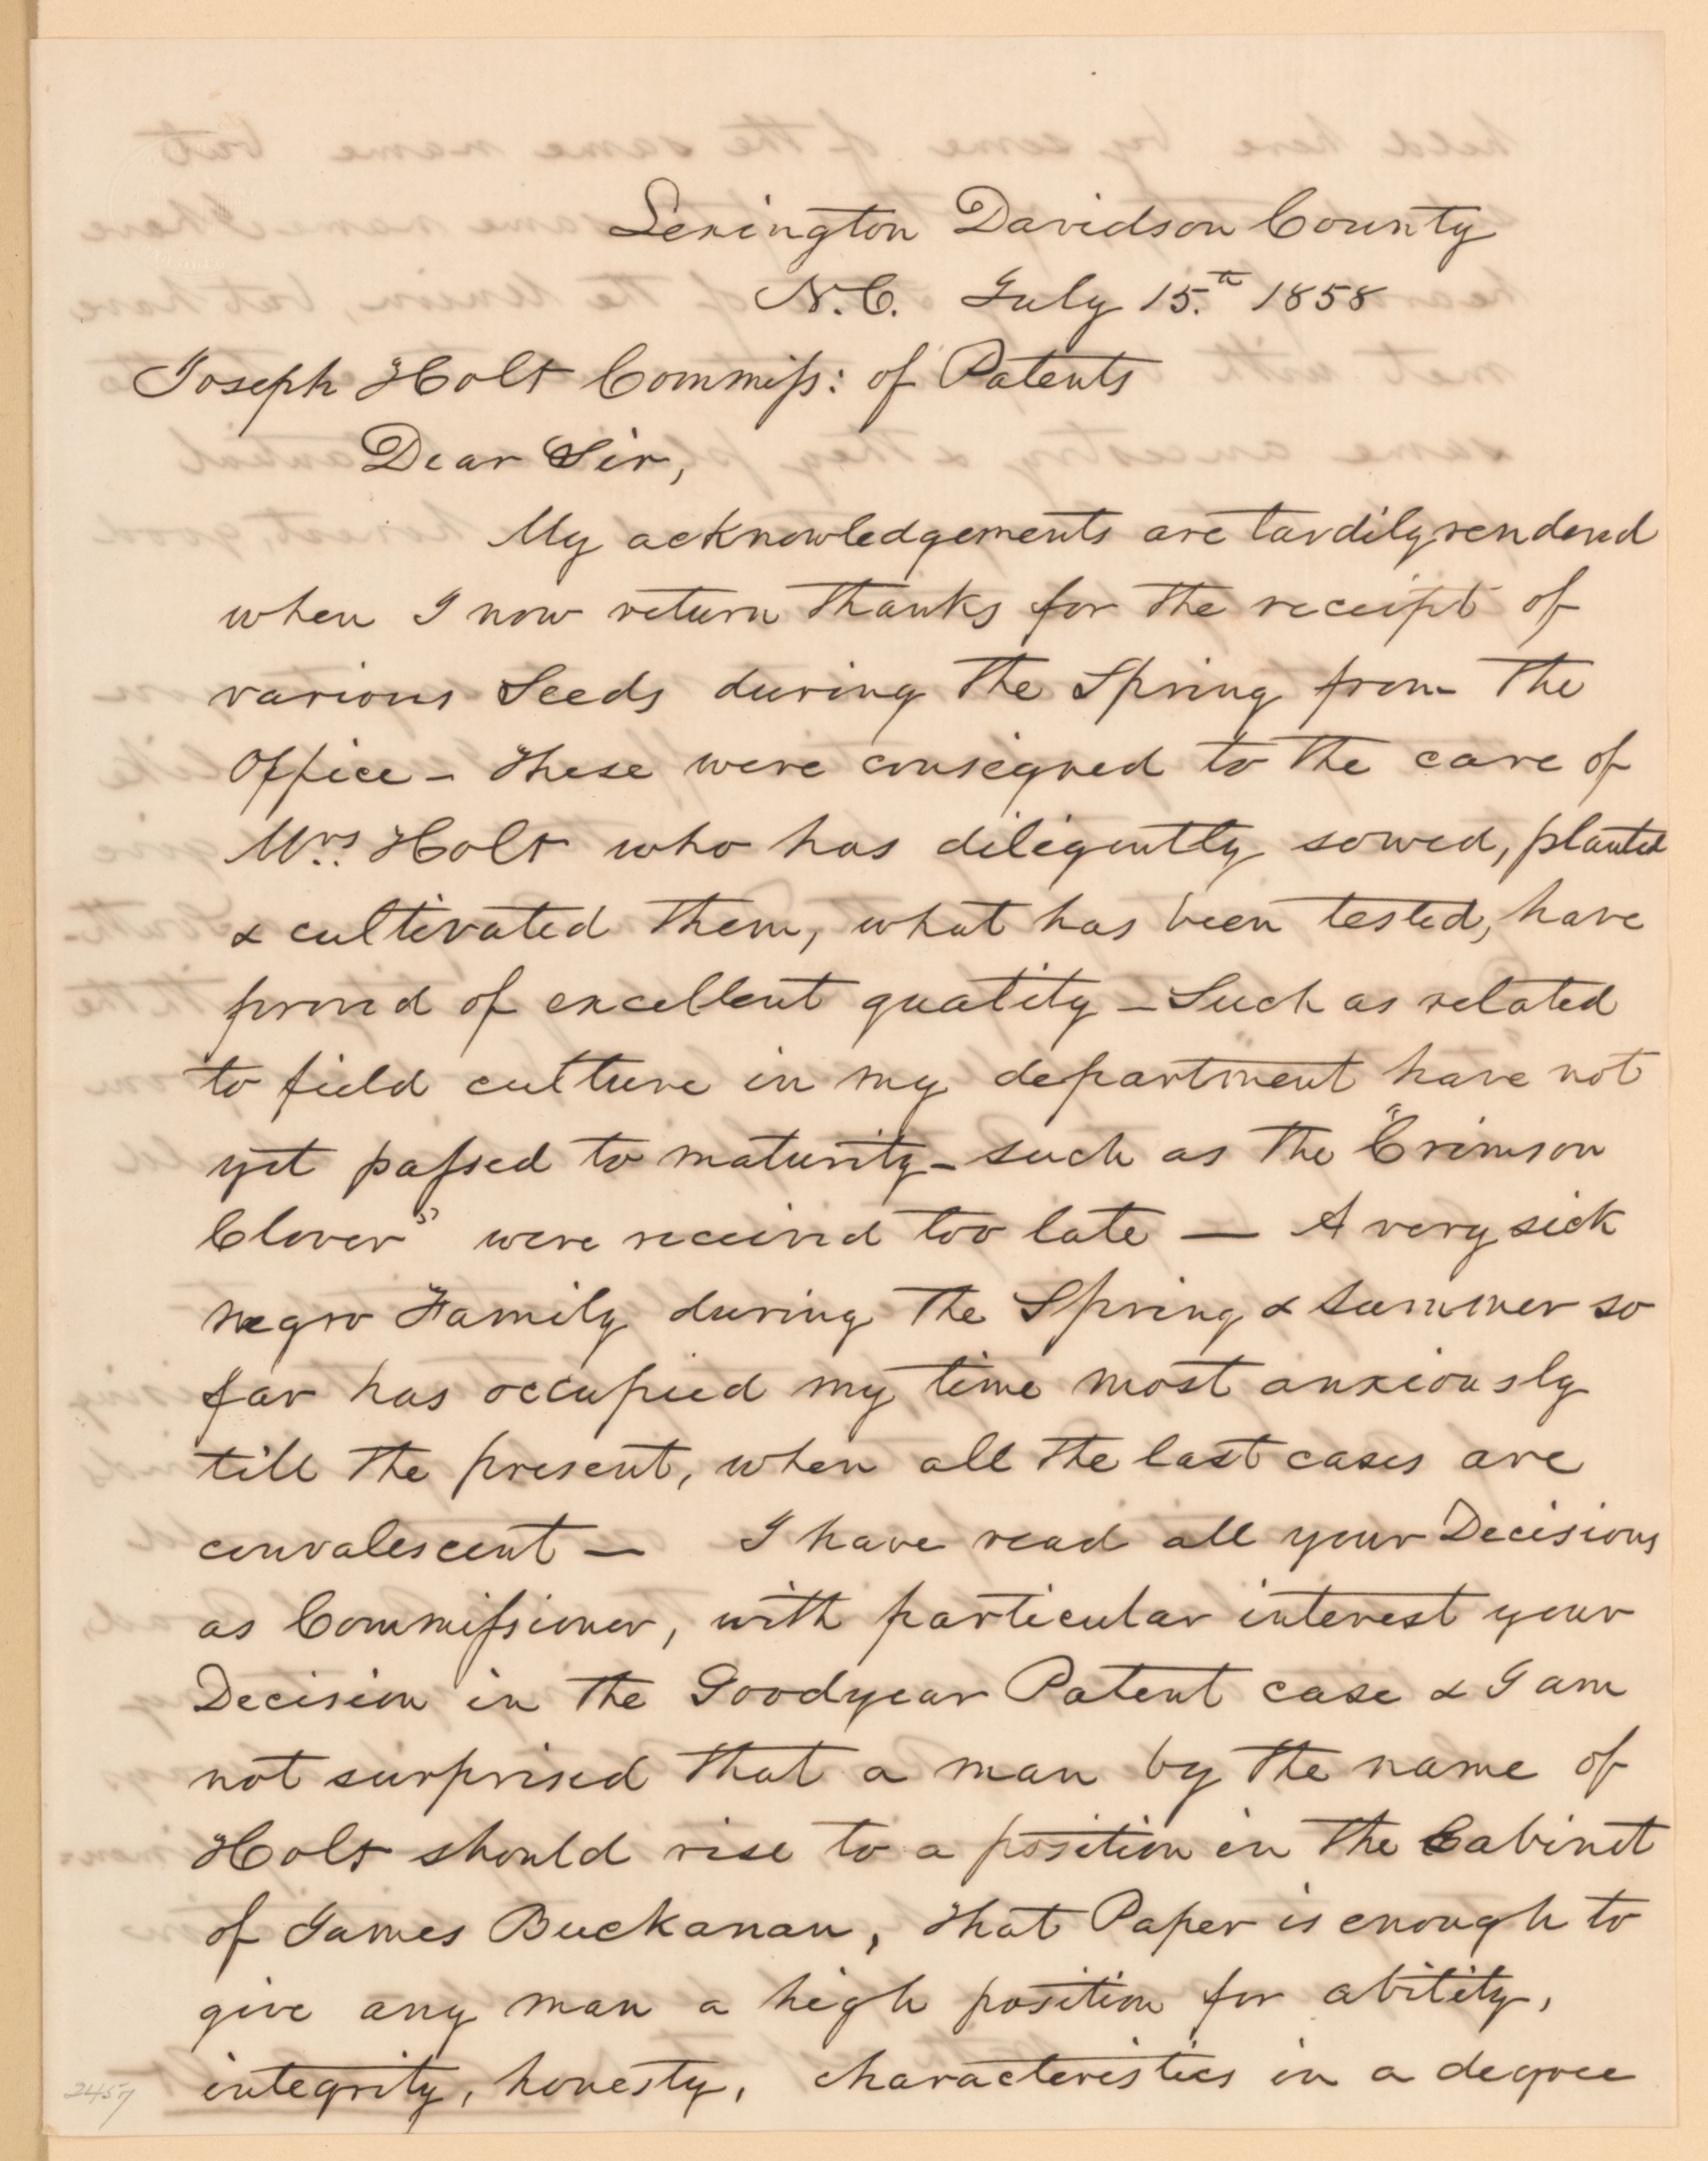 Lexington Davidson County
N.C. July 15.th 1858
Joseph Holt Commiss: of Patents
Dear Sir,
My acknowledgements are tardily rendered
when I now return thanks for the receipt of
various Seeds during the Spring from the
Office - These were consigned to the care of
Mrs. Holt who has diligently sowed, planted
& cultivated them, what has been tested, have
proved of excellent quality - Such as related
to field culture in my department have not
yet passed to maturity - such as the "Crimson
Clover" were received too late — A very sick
negro Family during the Spring & Summer so
far has occupied my time most anxiously
till the present, when all the last cases are
convalescent — I have read all your Decisions
as Commissioner, with particular interest your
Decision in the Goodyear Patent case & I am
not surprised that a man by the name of
Holt should rise to a position in the Cabinet
of James Buckanan, that Paper is enough to
give any man a high position for ability,
integrity, honesty, characteristics in a degree
2457